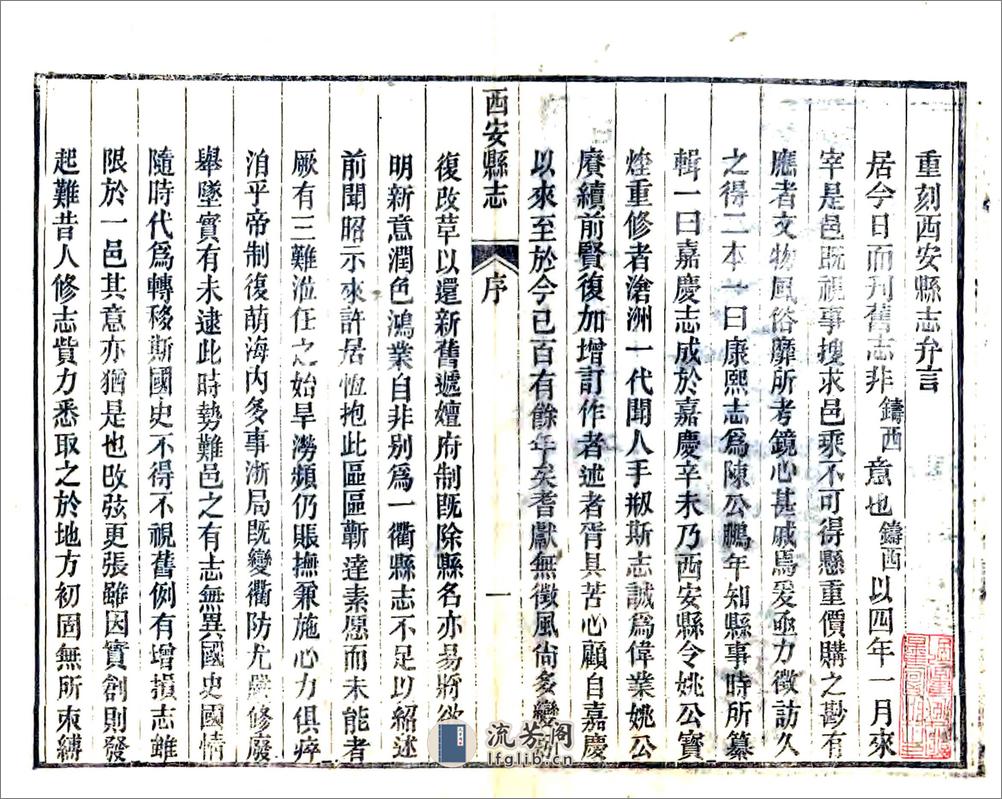 重刻西安縣志弁言
居今日而刊舊志非鑄西意也鑄西以四年一月來
宰是邑既視事搜求邑乘不可得懸重價購之尠有
應者文物風俗靡所考鏡心甚戚焉爰亟力徵訪久
之得二本一曰康熙志為陳公鵬年知縣事時所纂
輯一曰嘉慶志成於嘉慶辛未乃西安縣令姚公寶
煃重修者滄洲一代聞人手刱斯志誠為偉業姚公
賡續前賢復加增訂作者述者胥具苦心顧自嘉慶
以來至於今已百有餘年矣耆獻無徵風尚多變
西安縣志 序 一
復改草以還新舊遞嬗府制既除縣名亦易將欲
明新意潤色鴻業自非別為一衢縣志不足以紹述
前聞昭示來許居恆抱此區區蘄達素愿而未能者
厥有三難涖任之始旱澇頻仍賑撫兼施心力俱瘁
洎乎帝制復萌海內多事浙局既變衢防尤興修廢
舉墜實有未逮此時勢難邑之有志無異國史國情
隨時代為轉移斯國史不得不視舊例有增損志雖
限於一邑其意亦猶是也改弦更張雖因實創則發
起難昔人修志貲力悉取之於地方初固無所束縛
流芳阁
lfglib.cn